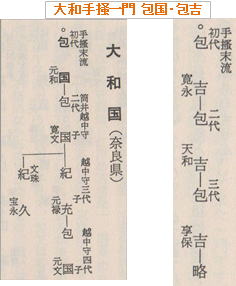 大和手掻一門 包国・包吉
大和国(奈良県)
手掻末流
初代
包国
元和
筒井越中守
二代
包国
寛文
子 越中守三代
紀充
元禄
子 越中守四代
包国
元文
文珠
紀久
宝永
手掻末流
初代
包吉
寛永
二代
包吉
天和
三代
包吉
享保
略